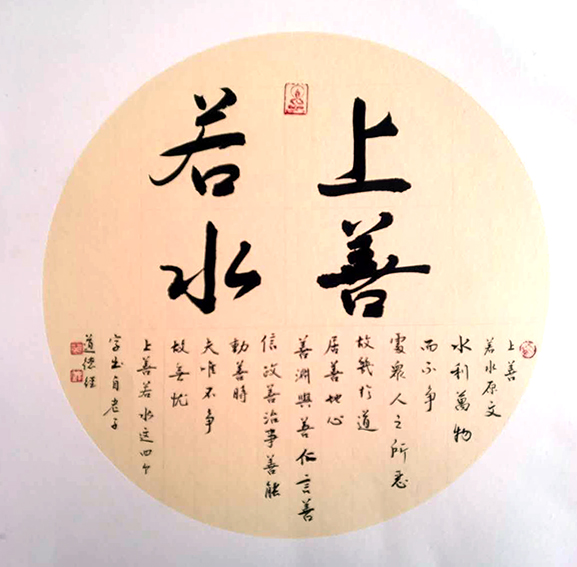 上善
若水
上善
若水原文
水利萬物
而不争
處衆人之所惡
故幾於道
居善地心
善淵與善仁言善
信政善治事善能
動善時
夫唯不争
故無忧
上善若水这四个
字出自老子
道德经